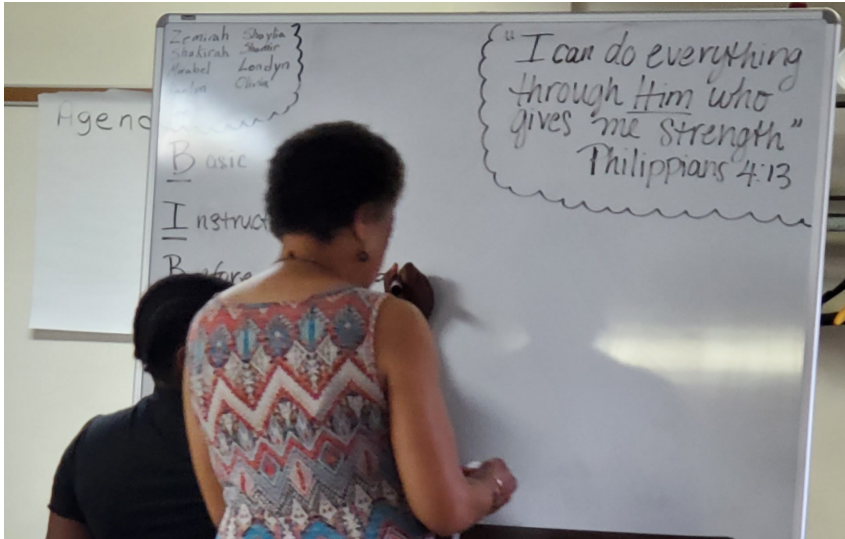 Zemirah Shaylia
Shakirah Shamir
Mirabel Londyn
Olivia
Agend
Basic
Instruct
Before
"I can do everything
through Him who
gives me strength"
Philippians 4:13